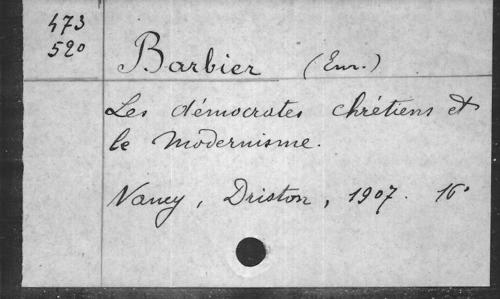 473
520
Barbier (Em.)
Les démocrates chrétiens et
le Modernisme.
Nancy, Driston, 1907. 16°